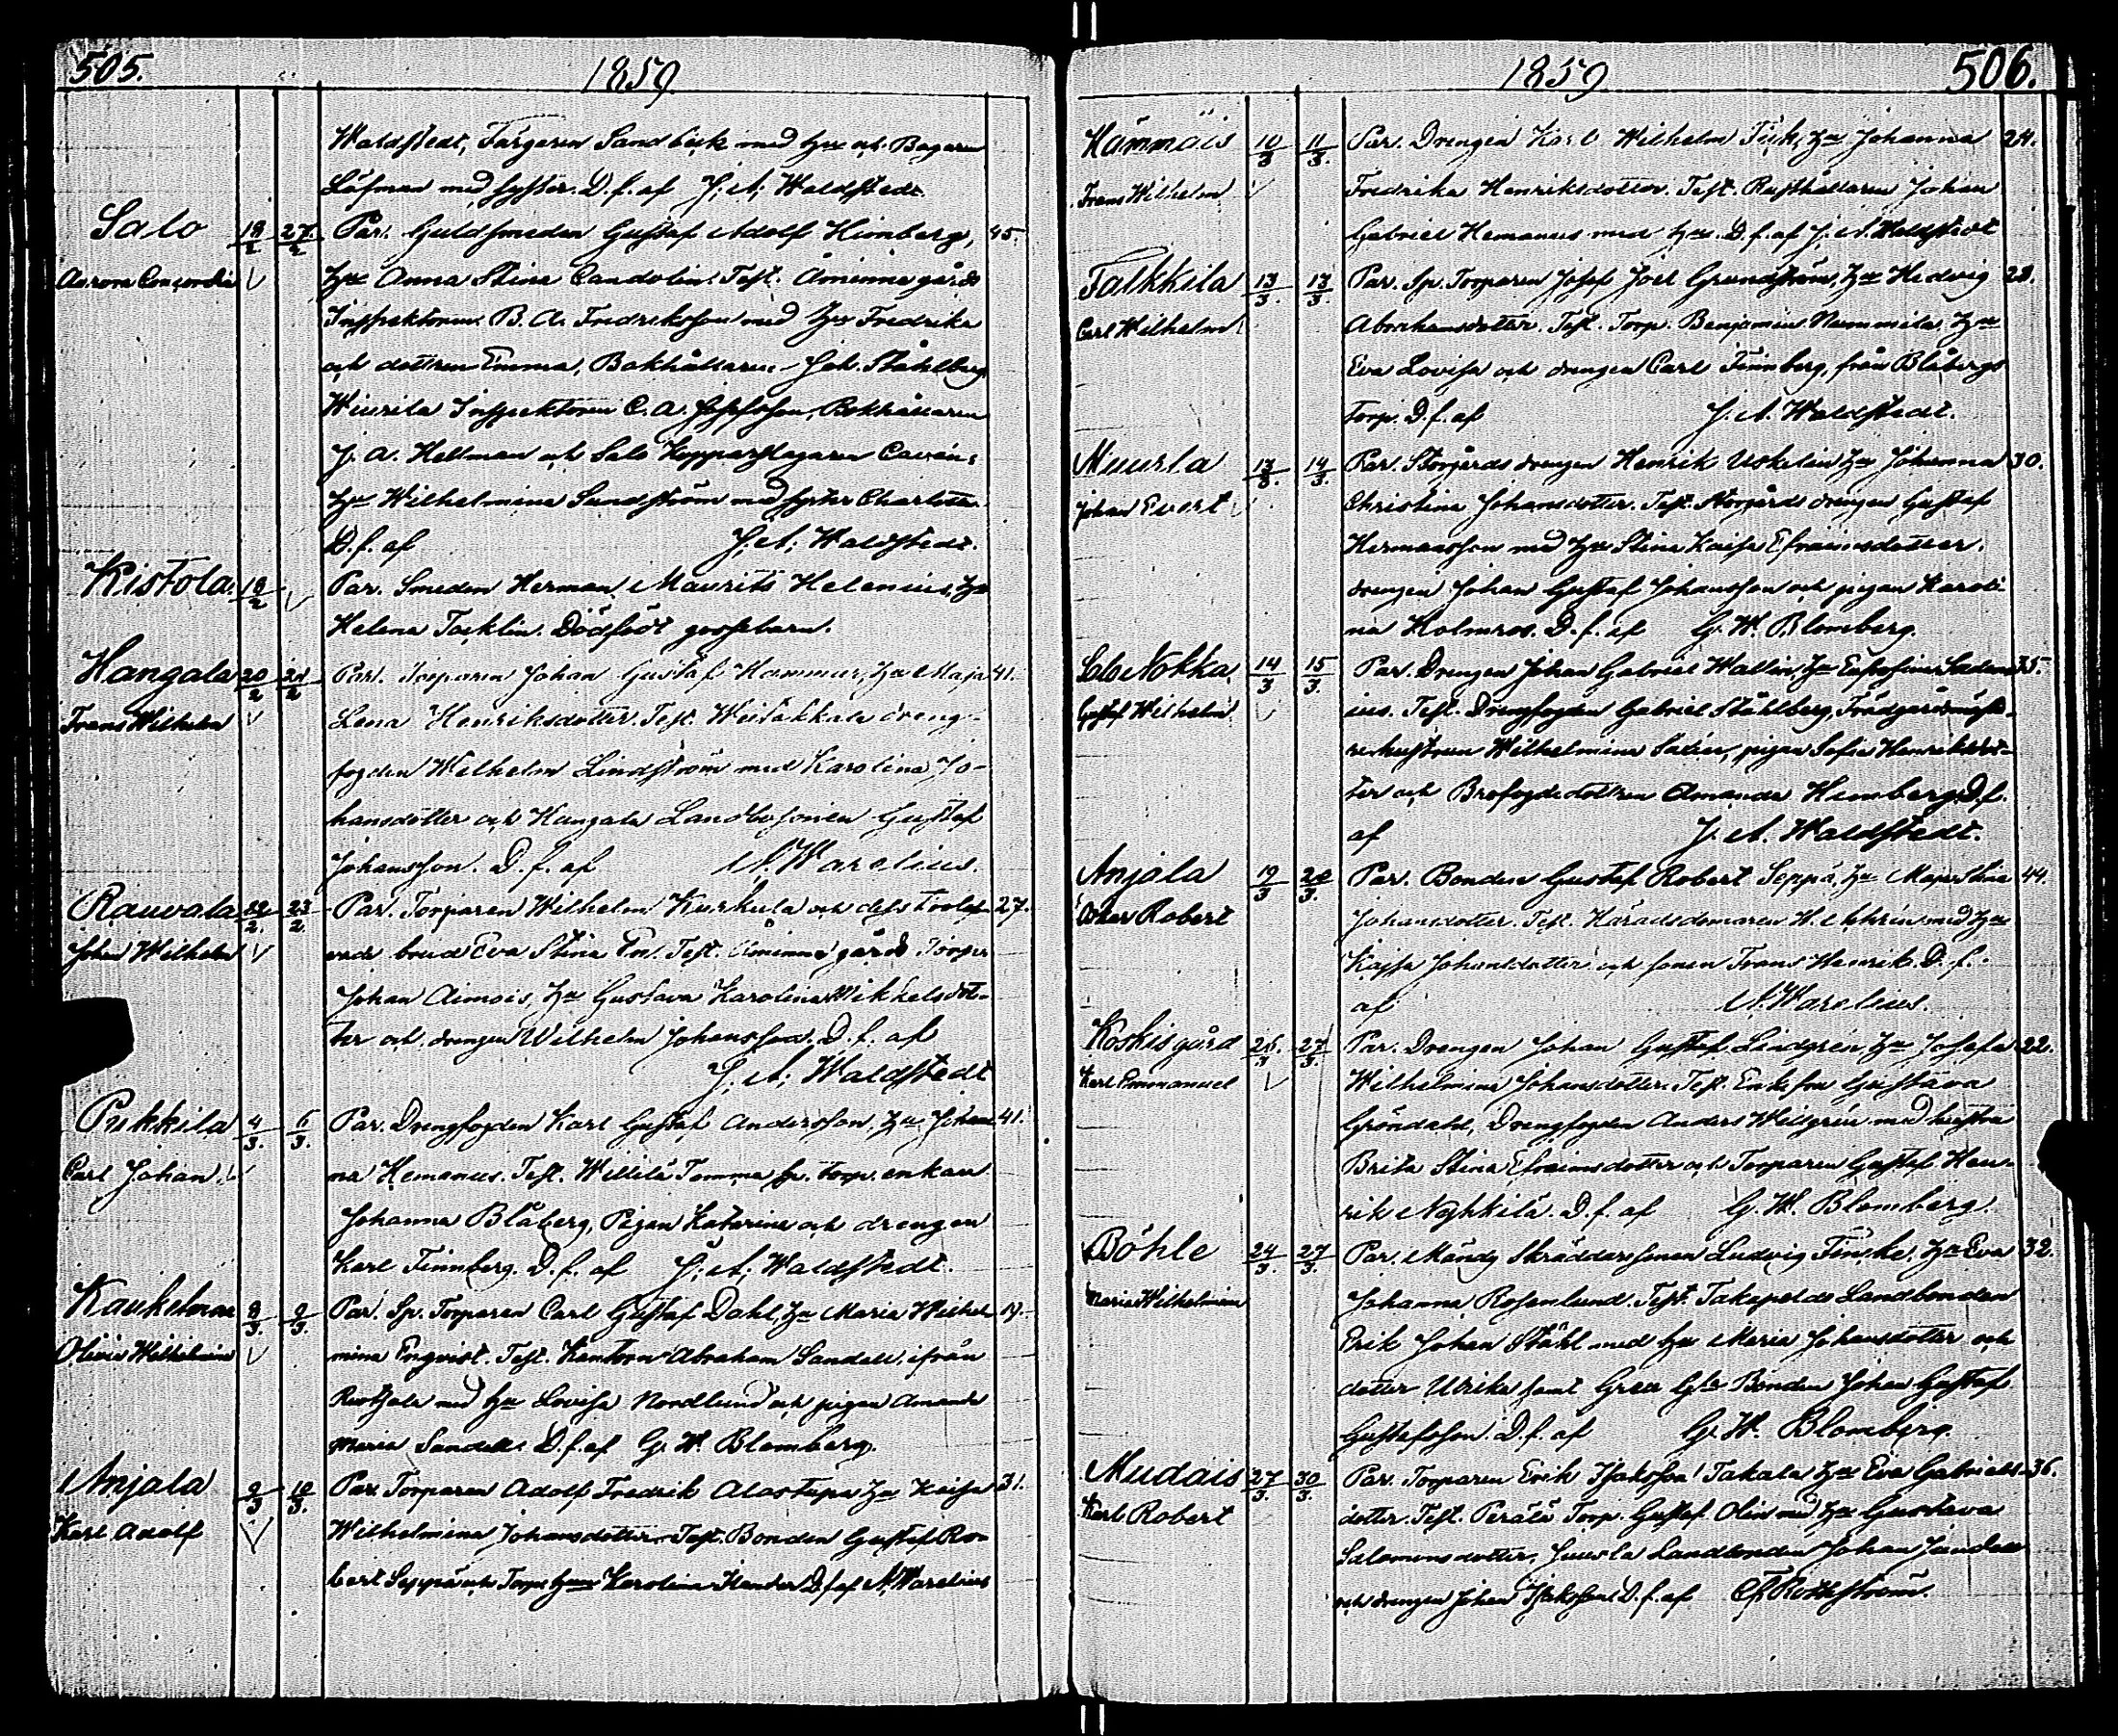 505.
1859.
Waldstedt, Färgaren Sandbäck med hu och Bagaren
Löfman med syster. D. f. af J. A. Waldstedt.
Salo 18/2 27/2 Par. Guldsmeden Gustaf Adolf Himberg, 45.
Aurora Concordia hu Anna Stina Candolin. Test. Åminne gårds
Inspektoren B. A. Fredriksson med hu Fredrika
och dottren Emma, Bokhållaren Joh. Ståhlberg,
Wiurila Inspektoren C. A. Josefsson, Bokhållaren
J. A. Hellman och Salo Kopparslagaren
hu Wilhelmina Sundström med syster Charlotta.
D. f. af J. A. Waldstedt.
Kistola. 19/2 Par. Smeden Herman Maurits Helenius, hu
Helena Tacklin. Dödfödt gossebarn.
Hangala 20/2 24/2 Par. Torparen Johan Gustaf Hammar, hu Maja 41.
Frans Wilhelm Lena Henriksdotter. Test. dreng-
fogden Wilhelm Lindström med Karolina Jo-
hansdotter och Hangala Landbosonen Gustaf
Johansson. D. f. af A. Warelius.
Rauvola 22/2 23/2 Par. Torparen Wilhelm Kurkula och dess trolof- 27.
Johan Wilhelm vade brud Eva Stina Test. Åminne gårds Torpar
Johan Aimois, hu Gustava Karolina Mikkelsdot-
ter och drengen Wilhelm Johansson. D. f. af
J. A. Waldstedt
Pukkila 4/3 6/3 Par. Drengfogden Karl Gustaf Andersson, hu Johan- 41.
Carl Johan na Hemanus. Test. Willilä Tamma sp. torp. enkan
Johanna Blåberg, Pigan Katarina och drengen
Karl Finnberg. D. f. af J. A. Waldstedt.
Kaukelmaa 8/3 9/3 Par. Sp. Torparen Carl Gustaf Dahl, hu Maria Wilhel-
Olivia Wilhelmina mina Enqvist. Test. Kantorn Abraham Sandell, ifrån
Ruotsala med hu Lovisa Nordlund och pigan Amanda
Maria Sandell. D. f. af G. W. Blomberg.
Anjala 9/3 10/3 Par. Torparen Adolf Fredrik Alastupa hu Kaisa 31.
Karl Adolf Wilhelmina Johansdotter. Test. Bonden Gustaf Ro-
bert Seppä och Torp. hu Karolina D. f. af A. Warelius
1859
506.
Hämmäis 10/3 11/3 Par. Drengen Karl Wilhelm hu Johanna 24.
Frans Wilhelm Fredrika Henriksdotter. Test. Rusthållaren Johan
Gabriel Hemanus med hu. D. f. af J. A. Waldstedt
Talkkila 13/3 13/3 Par. Sp. Torparen Josef Joel Grundström, hu Hedvig 28.
Carl Wilhelm Abrahamsdotter. Test. Torp. Benjamin Nummila, hu
Eva Lovisa och drengen Carl Finnberg, från Blåbergs
torp. D. f. af J. A. Waldstedt.
Muurla 13/3 14/3 Par. Storgårds drengen Henrik Uskelin hu Johanna 30.
Johan Evert Christina Johansdotter. Test. Storgårds drengen Gustaf
Hermansson med hu Stina Kaisa Efraimsdotter,
drengen Johan Gustaf Johansson och pigan Karoli-
na Holmros. D. f. af G. W. Blomberg.
Lilla Nokka 14/3 15/3 Par. Drengen Johan Gabriel Wallin, hu Eufrosine 35.
Gustaf Wilhelm ius. Test. Drengfogden Gabriel Ståhlberg, Trädgårdsmäst-
rehustrun Wilhelmina pigan Sofia Henriksdot-
ter och Brofogdedottren Amanda Himberg. D. f.
af J. A. Waldstedt.
Anjala 19/3 20/3 Par. Bonden Gustaf Robert Seppä, hu Maja Stina 44.
Oskar Robert Johansdotter. Test. Häradsdomaren H. med hu
Kajsa Johansdotter och sonen Frans Henrik. D. f.
af A. Warelius.
Koskisgård 26/3 27/3 Par. Drengen Johan Gustaf Lindgrén, hu Josefa 22.
Karl Emmanuel Wilhelmina Johansdotter. Test. Enkefru Gustava
Gröndahl, Drengfogden Anders Wellgrén med hustru
Brita Stina Efraimsdotter och Torparen Gustaf Hen-
rik D. f. af G. W. Blomberg.
Böhle 24/3 27/3 Par. Måndg Skräddaresonen Ludvig Finske, hu Eva 32.
Maria Wilhelmina Johanna Rosenlund. Test. Takapelto Landbonden
Erik Johan Ståhl med hu Maria Johansdotter och
dotter Ulrika samt Bonden Johan Gustaf
Gustafsson. D. f. af G. W. Blomberg.
Mudais 27/3 30/3 Par. Torparen Erik Isaksson Takala hu Eva Gabriels- 36.
Karl Robert dotter. Test. Perälä Torp. Gustaf Olin med hu Gustava
Salomonsdotter, Juurla Landbonden Johan
och drengen Johan Isaksson D. f. af